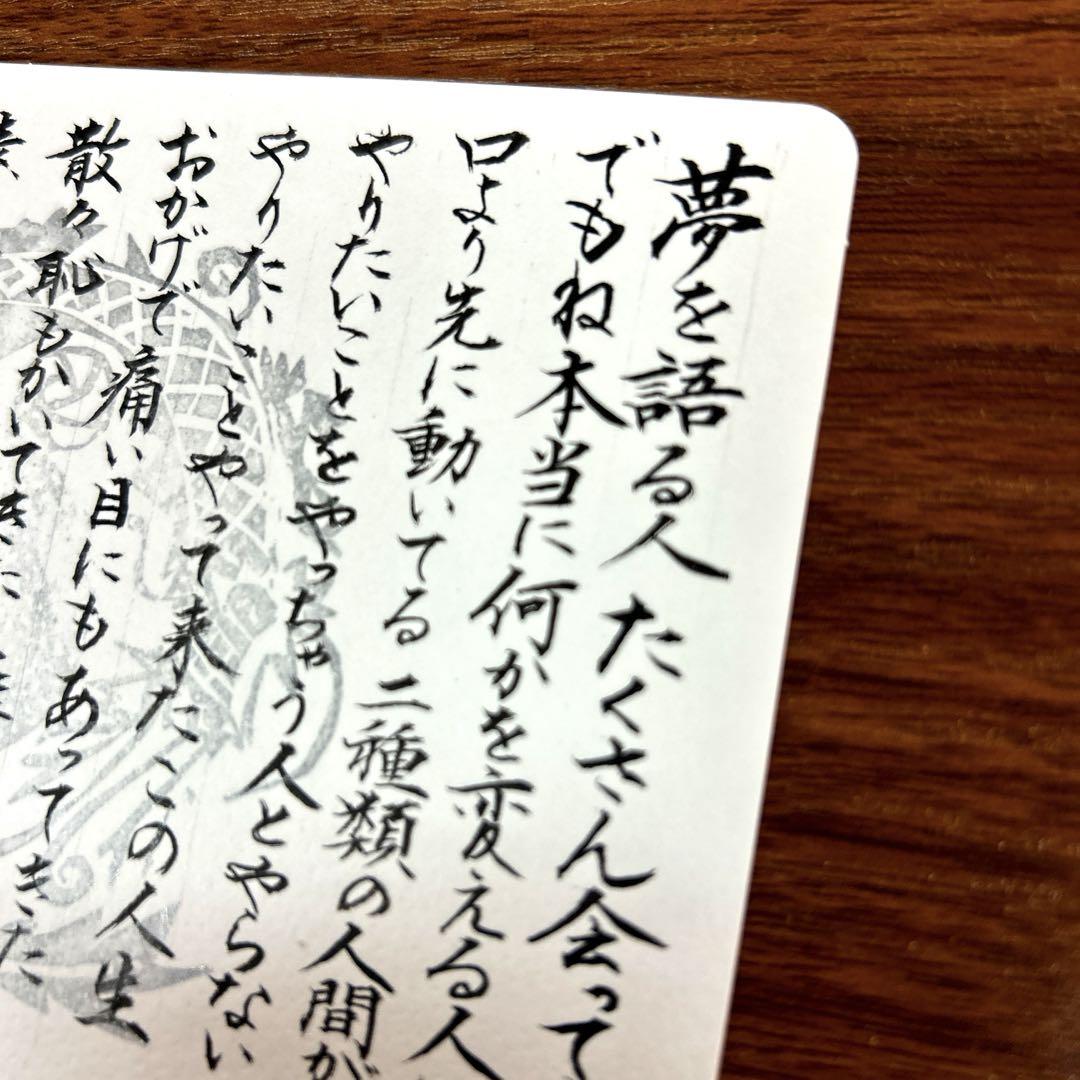 夢を語る人 たくさん会って
でもね本当に何かを変える人
口より先に動いてる 二種類の人間が
やりたいことをやっちゃう人とやらない
やりたいことやって来たこの人生
おかげで痛い目にもあってきた
散々恥もかいてきた